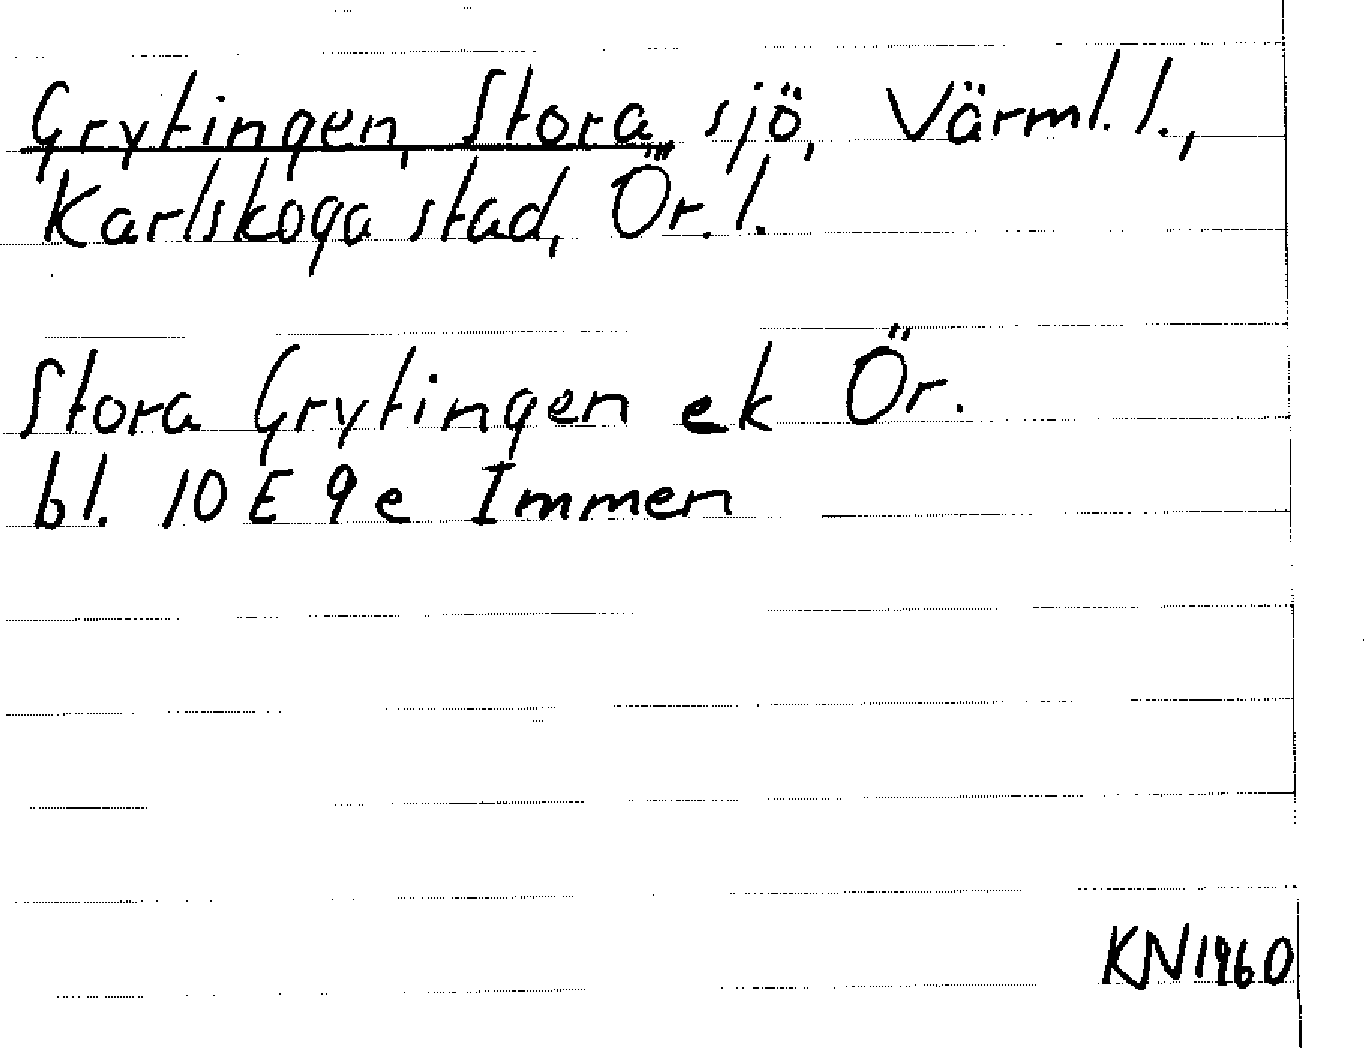 Grytingen, Stora, sjö, Värml. l.,
Karlskoga stad, Ör. l.
Stora Grytingen ek Ör.
bl. 10 E 9 e Immen
KN 1960